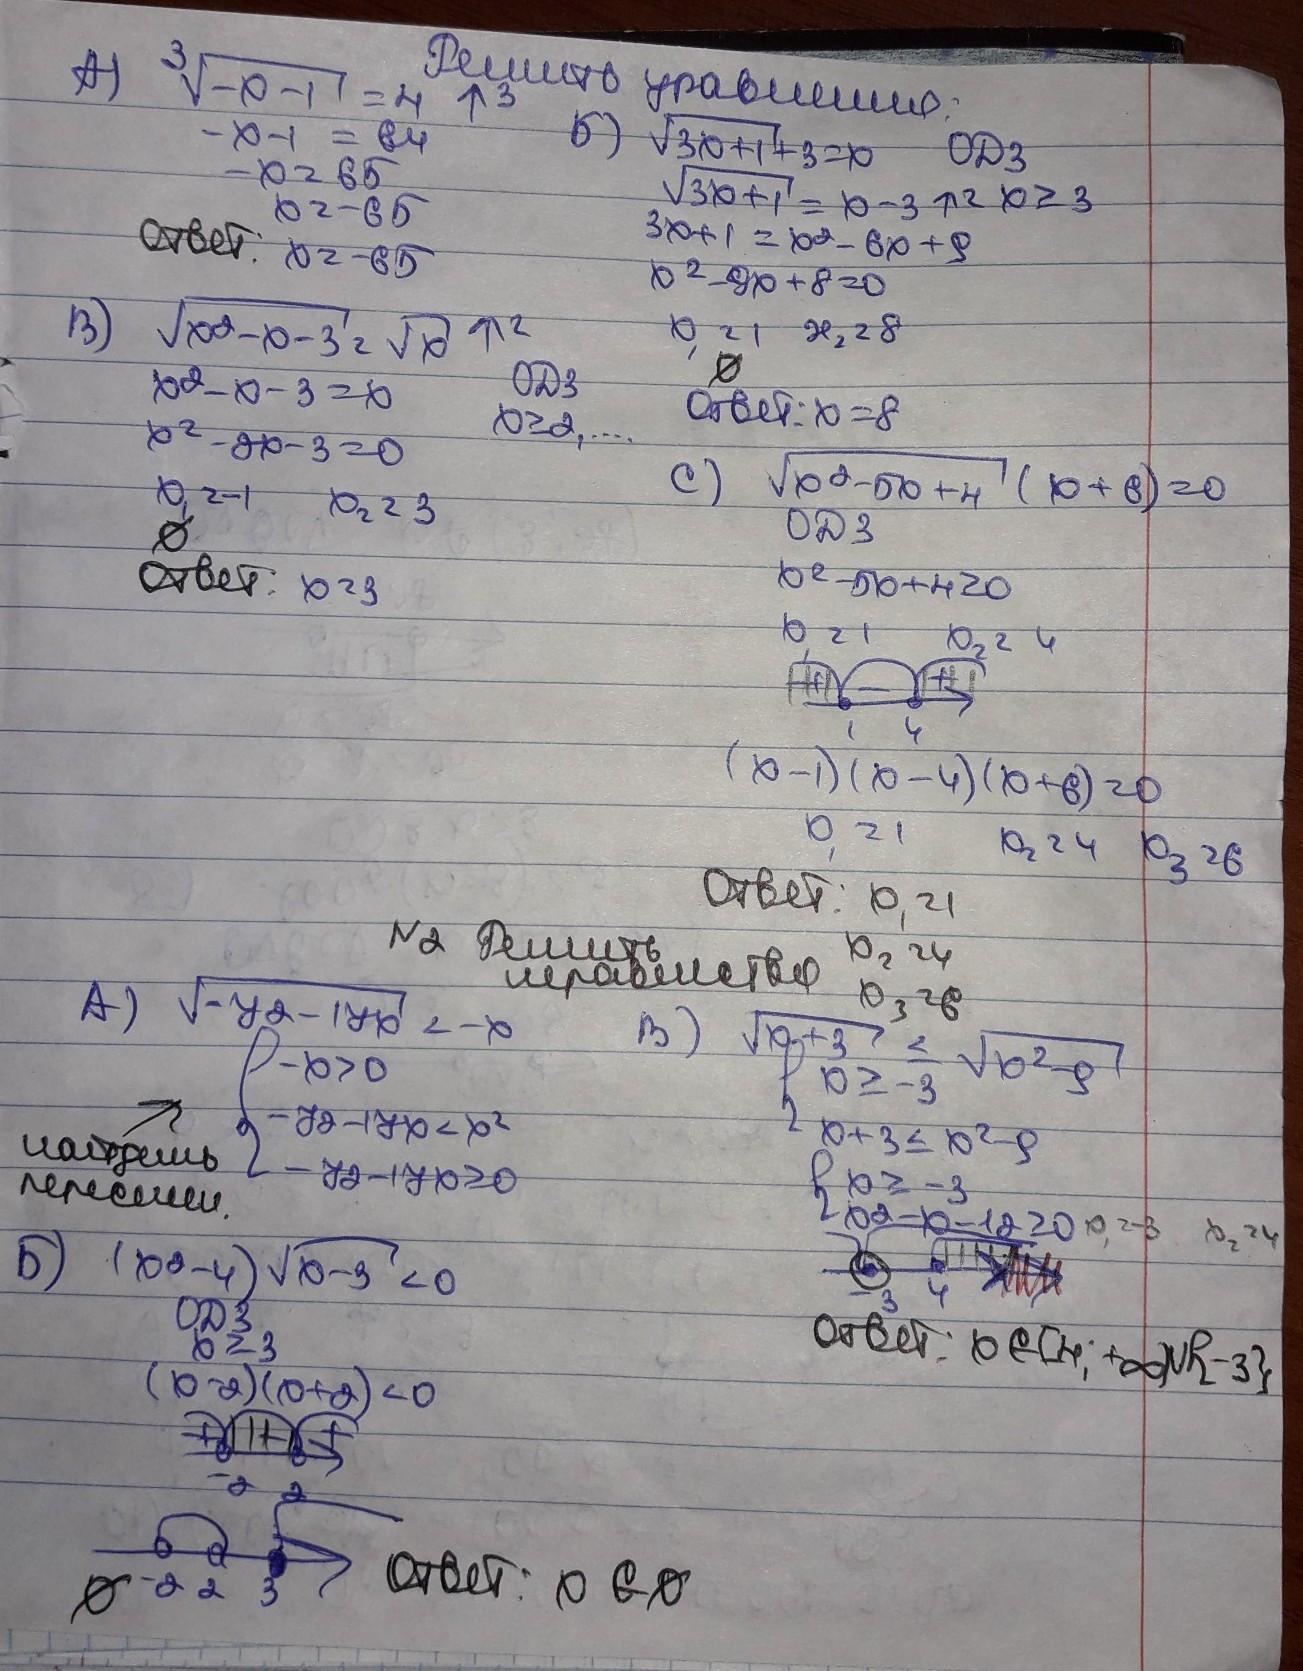 Решить уравнение:
А) ³√(-x-1) = 4 ↑3
-x-1 = 64
-x = 65
x = -65
Ответ: x = -65
Б) √(3x+1) + 3 = x ОДЗ
√(3x+1) = x-3 ↑2 x ≥ 3
3x+1 = x²-6x+9
x²-9x+8=0
x₁=1 x₂=8
∅
Ответ: x=8
В) √(x²-x-3) = √x ↑²
x²-x-3=x ОДЗ
x≥2,....
x²-2x-3=0
x₁=-1 x₂=3
∅
Ответ: x=3
С) √(x²-5x+4) (x+6)=0
ОДЗ
x²-5x+4≥0
x₁=1 x₂=4
+ - +
1 4
(x-1)(x-4)(x+6)=0
x₁=1 x₂=4 x₃=6
Ответ: x₁=1
x₂=4
x₃=6
N2 Решить
неравенство
А) √(-72-17x) < -x
-x>0
-72-17x<x²
-72-17x≥0
найдешь
пересечен.
Б) (x²-4)√(x-3) <0
ОДЗ
x≥3
(x-2)(x+2)<0
+ + +
-2 2
-2 2 3
∅
Ответ: x∈∅
В) √(x+3) ≤ √(x²-9)
x ≥ -3
x+3 ≤ x²-9
x ≥ -3
x²-x-12≥0 x₁=-3 x₂=4
-3 4
Ответ: x∈[4; +∞)∪{-3}